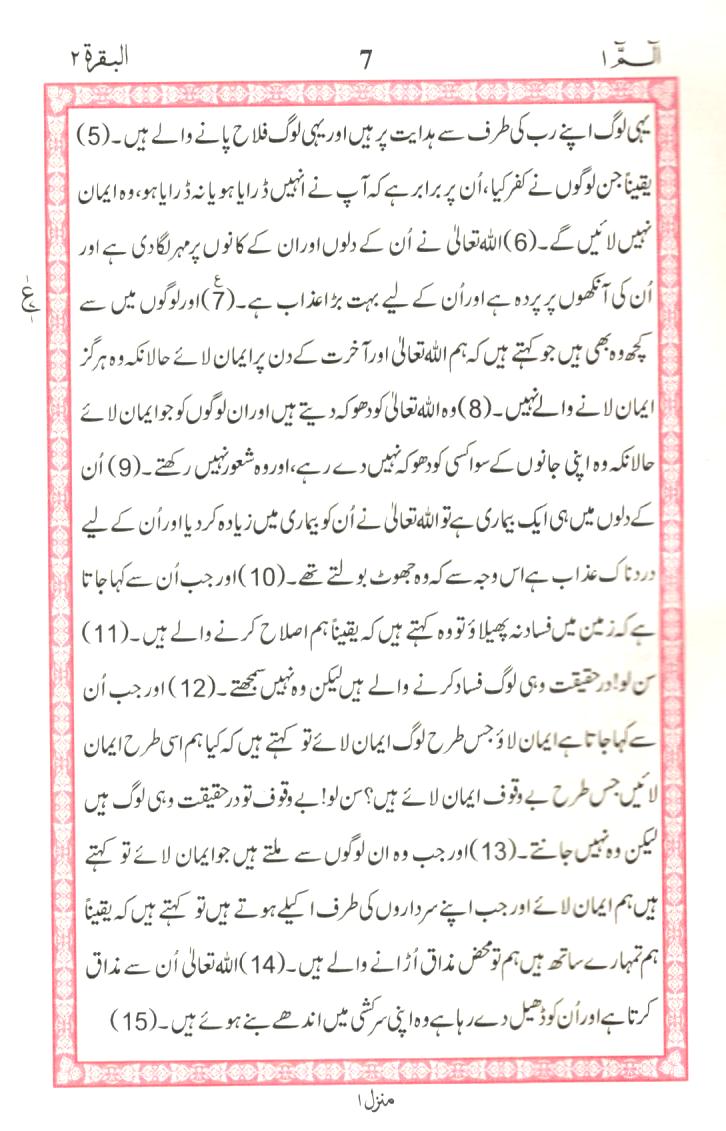 الٓـمّٓ ۱ 7 البقرة ۲
یہی لوگ اپنے رب کی طرف سے ہدایت پر ہیں اور یہی لوگ فلاح پانے والے ہیں۔(5)
یقیناً جن لوگوں نے کفر کیا، اُن پر برابر ہے کہ آپ نے انہیں ڈرایا ہو یا نہ ڈرایا ہو، وہ ایمان
نہیں لائیں گے۔(6) اللہ تعالیٰ نے اُن کے دلوں اور ان کے کانوں پر مہر لگا دی ہے اور
اُن کی آنکھوں پر پردہ ہے اور اُن کے لیے بہت بڑا عذاب ہے۔(7)ع اور لوگوں میں سے
ع
کچھ وہ بھی ہیں جو کہتے ہیں کہ ہم اللہ تعالیٰ اور آخرت کے دن پر ایمان لائے حالانکہ وہ ہرگز
ایمان لانے والے نہیں۔(8) وہ اللہ تعالیٰ کو دھوکہ دیتے ہیں اور ان لوگوں کو جو ایمان لائے
حالانکہ وہ اپنی جانوں کے سوا کسی کو دھوکہ نہیں دے رہے، اور وہ شعور نہیں رکھتے۔(9) اُن
کے دلوں میں ہی ایک بیماری ہے تو اللہ تعالیٰ نے اُن کو بیماری میں زیادہ کر دیا اور اُن کے لیے
دردناک عذاب ہے اس وجہ سے کہ وہ جھوٹ بولتے تھے۔(10) اور جب اُن سے کہا جاتا
ہے کہ زمین میں فساد نہ پھیلاؤ تو وہ کہتے ہیں کہ یقیناً ہم اصلاح کرنے والے ہیں۔(11)
سن لو! درحقیقت وہی لوگ فساد کرنے والے ہیں لیکن وہ نہیں سمجھتے۔(12) اور جب اُن
سے کہا جاتا ہے ایمان لاؤ جس طرح لوگ ایمان لائے تو کہتے ہیں کہ کیا ہم اسی طرح ایمان
لائیں جس طرح بے وقوف ایمان لائے ہیں؟ سن لو! بے وقوف تو درحقیقت وہی لوگ ہیں
لیکن وہ نہیں جانتے۔(13) اور جب وہ ان لوگوں سے ملتے ہیں جو ایمان لائے تو کہتے
ہیں ہم ایمان لائے اور جب اپنے سرداروں کی طرف اکیلے ہوتے ہیں تو کہتے ہیں کہ یقیناً
ہم تمہارے ساتھ ہیں ہم تو محض مذاق اُڑانے والے ہیں۔(14) اللہ تعالیٰ اُن سے مذاق
کرتا ہے اور اُن کو ڈھیل دے رہا ہے وہ اپنی سرکشی میں اندھے بنے ہوئے ہیں۔(15)
منزل ۱